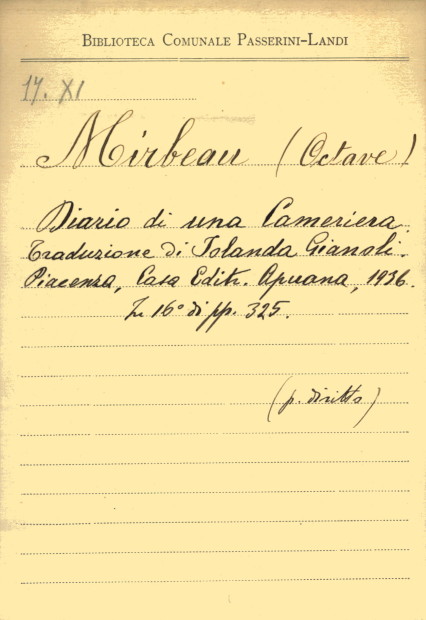 BIBLIOTECA COMUNALE PASSERINI-LANDI
17. XI
Mirbeau (Octave)
Diario di una Cameriera.
Traduzione di Iolanda Gianoli.
Piacenza, Casa Editr. Apuana, 1936.
In 16° di pp. 325.
(p. diritto)